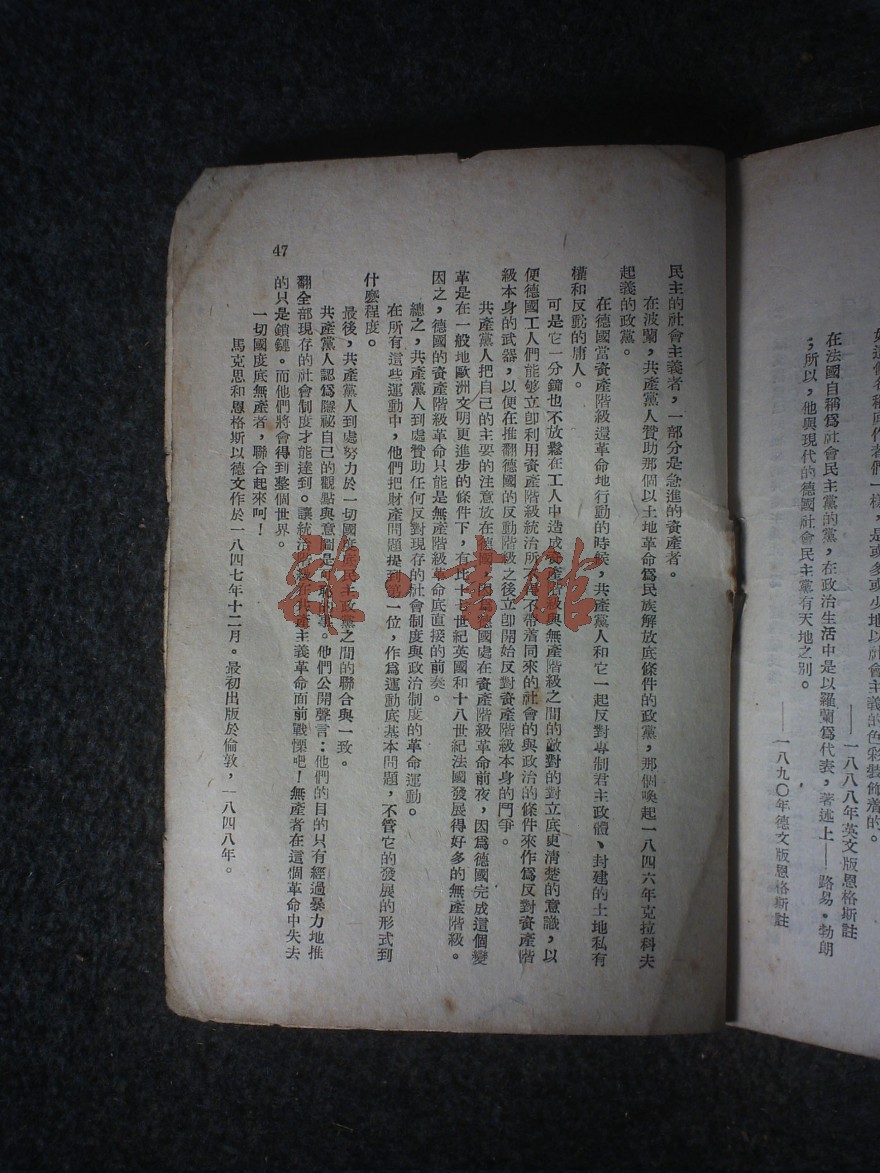 如這個名稱底作者們一樣，是或多或少地以社會主義的色彩裝飾着的。
——一八八八年英文版恩格斯註
在法國自稱爲社會民主黨的黨，在政治生活中是以羅蘭爲代表，著述上——路易·勃朗
；所以，他與現代的德國社會民主黨有天地之別。
——一八九〇年德文版恩格斯註
民主的社會主義者，一部分是急進的資產者。
在波蘭，共產黨人贊助那個以土地革命爲民族解放底條件的政黨，那個喚起一八四六年克拉科夫
起義的政黨。
在德國當資產階級還革命地行動的時候，共產黨人和它一起反對專制君主政體、封建的土地私有
權和反動的庸人。
可是它一分鐘也不放鬆在工人中造成資產階級與無產階級之間的敵對的對立底更清楚的意識，以
便德國工人們能够立卽利用資產階級統治所不得不帶着同來的社會的與政治的條件來作爲反對資產階
級本身的武器，以便在推翻德國的反動階級之後立卽開始反對資產階級本身的鬥爭。
共產黨人把自己的主要的注意放在德國，因爲德國處在資產階級革命前夜，因爲德國完成這個變
革是在一般地歐洲文明更進步的條件下，有比十七世紀英國和十八世紀法國發展得好多的無產階級。
因之，德國的資產階級革命只能是無產階級革命底直接的前奏。
總之，共產黨人到處贊助任何反對現存的社會制度與政治制度的革命運動。
在所有這些運動中，他們把財產問題提到第一位，作爲運動底基本問題，不管它的發展的形式到
什麽程度。
最後，共產黨人到處努力於一切國度底民主政黨之間的聯合與一致。
共產黨人認爲隱祕自己的觀點與意圖是可恥的事。他們公開聲言：他們的目的只有經過暴力地推
翻全部現存的社會制度才能達到。讓統治階級在共產主義革命面前戰慄吧！無產者在這個革命中失去
的只是鎖鏈。而他們將會得到整個世界。
一切國度底無產者，聯合起來呵！
馬克思和恩格斯以德文作於一八四七年十二月。最初出版於倫敦，一八四八年。
47
雜·書館